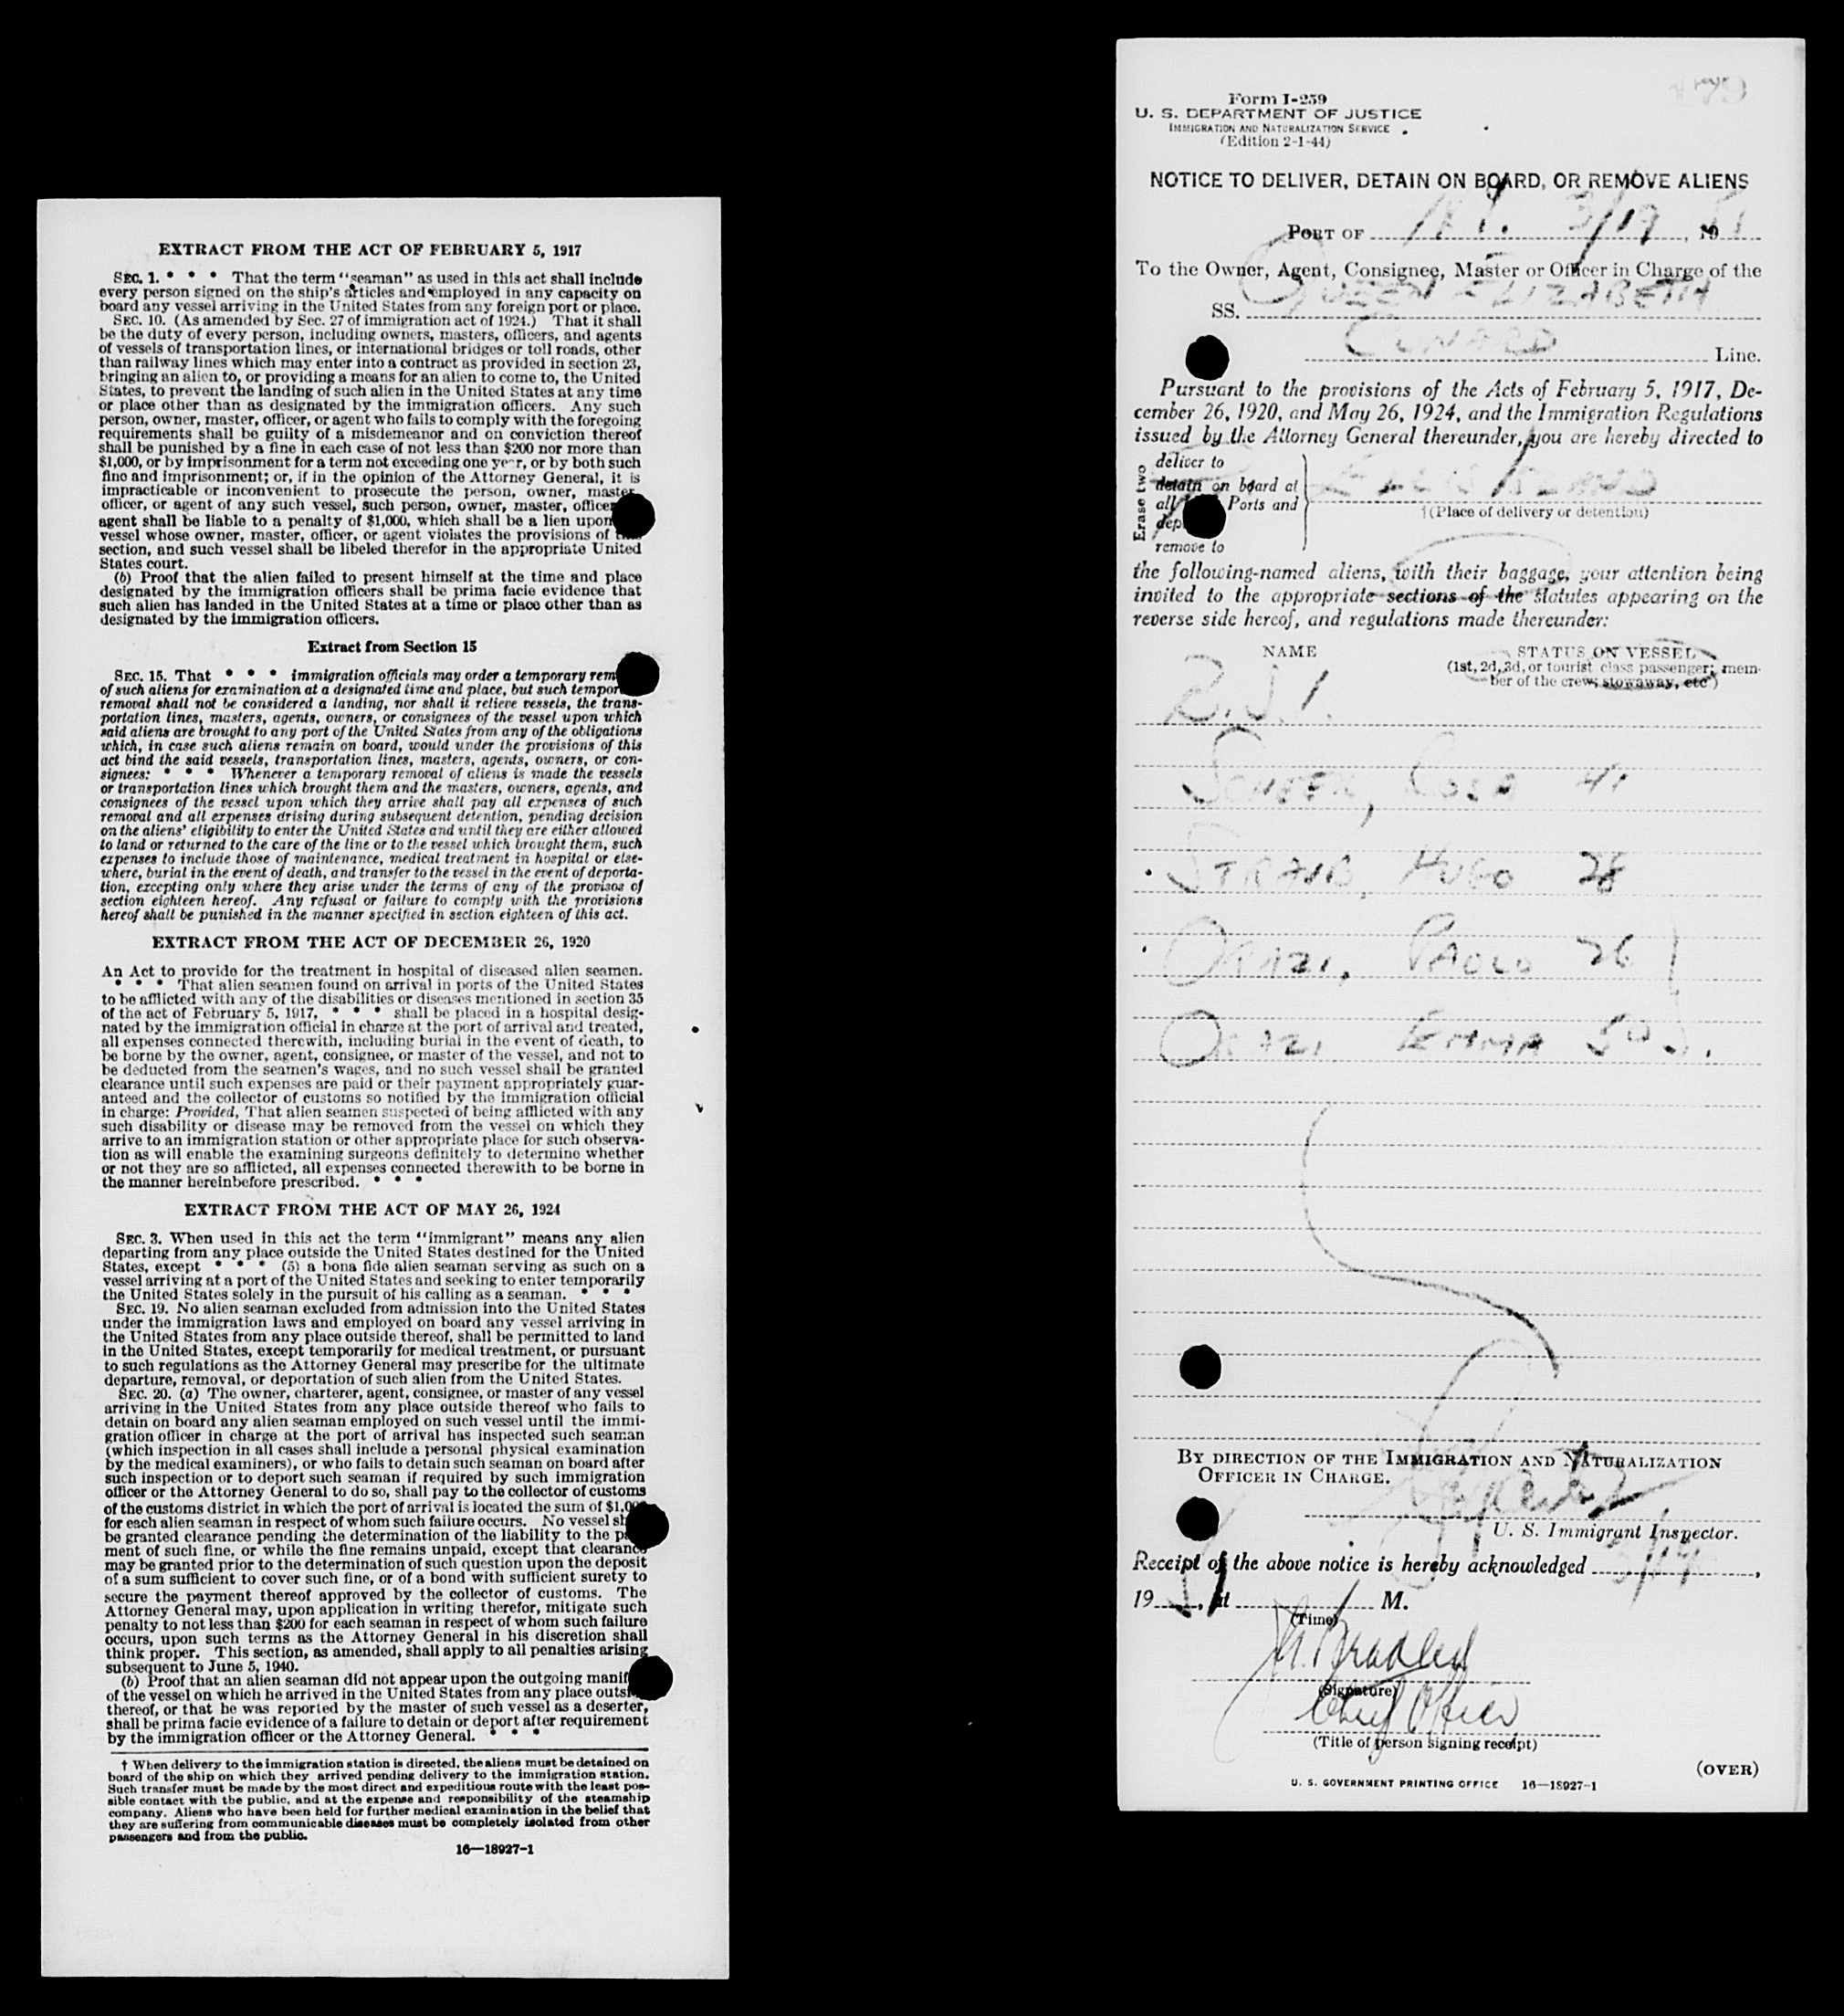 EXTRACT FROM THE ACT OF FEBRUARY 5, 1917
SEC. 1. * * * That the term "seaman" as used in this act shall include
every person signed on the ship's articles and employed in any capacity on
board any vessel arriving in the United States from any foreign port or place.
SEC. 10. (As amended by Sec. 27 of immigration act of 1924.) That it shall
be the duty of every person, including owners, masters, officers, and agents
of vessels of transportation lines, or international bridges or toll roads, other
than railway lines which may enter into a contract as provided in section 23,
bringing an alien to, or providing a means for an alien to come to, the United
States, to prevent the landing of such alien in the United States at any time
or place other than as designated by the immigration officers. Any such
person, owner, master, officer, or agent who fails to comply with the foregoing
requirements shall be guilty of a misdemeanor and on conviction thereof
shall be punished by a fine in each case of not less than $200 nor more than
$1,000, or by imprisonment for a term not exceeding one year, or by both such
fine and imprisonment; or, if in the opinion of the Attorney General, it is
impracticable or inconvenient to prosecute the person, owner, master
officer, or agent of any such vessel, such person, owner, master, officer
agent shall be liable to a penalty of $1,000, which shall be a lien upon
vessel whose owner, master, officer, or agent violates the provisions of
section, and such vessel shall be libeled therefor in the appropriate United
States court.
(b) Proof that the alien failed to present himself at the time and place
designated by the immigration officers shall be prima facie evidence that
such alien has landed in the United States at a time or place other than as
designated by the immigration officers.
Extract from Section 15
SEC. 15. That * * * immigration officials may order a temporary rem
of such aliens for examination at a designated time and place, but such tempor
removal shall not be considered a landing, nor shall it relieve vessels, the trans-
portation lines, masters, agents, owners, or consignees of the vessel upon which
said aliens are brought to any port of the United States from any of the obligations
which, in case such aliens remain on board, would under the provisions of this
act bind the said vessels, transportation lines, masters, agents, owners, or con-
signees: * * * Whenever a temporary removal of aliens is made the vessels
or transportation lines which brought them and the masters, owners, agents, and
consignees of the vessel upon which they arrive shall pay all expenses of such
removal and all expenses arising during subsequent detention, pending decision
on the aliens' eligibility to enter the United States and until they are either allowed
to land or returned to the care of the line or to the vessel which brought them, such
expenses to include those of maintenance, medical treatment in hospital or else-
where, burial in the event of death, and transfer to the vessel in the event of deporta-
tion, excepting only where they arise under the terms of any of the provisos of
section eighteen hereof. Any refusal or failure to comply with the provisions
hereof shall be punished in the manner specified in section eighteen of this act.
EXTRACT FROM THE ACT OF DECEMBER 26, 1920
An Act to provide for the treatment in hospital of diseased alien seamen.
* * * That alien seamen found on arrival in ports of the United States
to be afflicted with any of the disabilities or diseases mentioned in section 35
of the act of February 5, 1917, * * * shall be placed in a hospital desig-
nated by the immigration official in charge at the port of arrival and treated,
all expenses connected therewith, including burial in the event of death, to
be borne by the owner, agent, consignee, or master of the vessel, and not to
be deducted from the seamen's wages, and no such vessel shall be granted
clearance until such expenses are paid or their payment appropriately guar-
anteed and the collector of customs so notified by the immigration official
in charge: Provided, That alien seamen suspected of being afflicted with any
such disability or disease may be removed from the vessel on which they
arrive to an immigration station or other appropriate place for such observa-
tion as will enable the examining surgeons definitely to determine whether
or not they are so afflicted, all expenses connected therewith to be borne in
the manner hereinbefore prescribed. * * *
EXTRACT FROM THE ACT OF MAY 26, 1924
SEC. 3. When used in this act the term "immigrant" means any alien
departing from any place outside the United States destined for the United
States, except * * * (5) a bona fide alien seaman serving as such on a
vessel arriving at a port of the United States and seeking to enter temporarily
the United States solely in the pursuit of his calling as a seaman. * * *
SEC. 19. No alien seaman excluded from admission into the United States
under the immigration laws and employed on board any vessel arriving in
the United States from any place outside thereof, shall be permitted to land
in the United States, except temporarily for medical treatment, or pursuant
to such regulations as the Attorney General may prescribe for the ultimate
departure, removal, or deportation of such alien from the United States.
SEC. 20. (a) The owner, charterer, agent, consignee, or master of any vessel
arriving in the United States from any place outside thereof who fails to
detain on board any alien seaman employed on such vessel until the immi-
gration officer in charge at the port of arrival has inspected such seaman
(which inspection in all cases shall include a personal physical examination
by the medical examiners), or who fails to detain such seaman on board after
such inspection or to deport such seaman if required by such immigration
officer or the Attorney General to do so, shall pay to the collector of customs
of the customs district in which the port of arrival is located the sum of $1,000
for each alien seaman in respect of whom such failure occurs. No vessel sh
be granted clearance pending the determination of the liability to the p
ment of such fine, or while the fine remains unpaid, except that clearance
may be granted prior to the determination of such question upon the deposit
of a sum sufficient to cover such fine, or of a bond with sufficient surety to
secure the payment thereof approved by the collector of customs. The
Attorney General may, upon application in writing therefor, mitigate such
penalty to not less than $200 for each seaman in respect of whom such failure
occurs, upon such terms as the Attorney General in his discretion shall
think proper. This section, as amended, shall apply to all penalties arising
subsequent to June 5, 1940.
(b) Proof that an alien seaman did not appear upon the outgoing manif
of the vessel on which he arrived in the United States from any place outsi
thereof, or that he was reported by the master of such vessel as a deserter,
shall be prima facie evidence of a failure to detain or deport after requirement
by the immigration officer or the Attorney General. * * *
† When delivery to the immigration station is directed, the aliens must be detained on
board of the ship on which they arrived pending delivery to the immigration station.
Such transfer must be made by the most direct and expeditious route with the least pos-
sible contact with the public, and at the expense and responsibility of the steamship
company. Aliens who have been held for further medical examination in the belief that
they are suffering from communicable diseases must be completely isolated from other
passengers and from the public.
16—18927-1
Form I-259
U. S. DEPARTMENT OF JUSTICE
IMMIGRATION AND NATURALIZATION SERVICE
(Edition 2-1-44)
NOTICE TO DELIVER, DETAIN ON BOARD, OR REMOVE ALIENS
PORT OF N.Y. 3/19, 1951
To the Owner, Agent, Consignee, Master or Officer in Charge of the
SS. QUEEN ELIZABETH
CUNARD Line.
Pursuant to the provisions of the Acts of February 5, 1917, De-
cember 26, 1920, and May 26, 1924, and the Immigration Regulations
issued by the Attorney General thereunder, you are hereby directed to
Erase two
deliver to
detain on board at
all Ports and
dep
remove to
ELLIS ISLAND
†(Place of delivery or detention)
the following-named aliens, with their baggage, your attention being
invited to the appropriate sections of the statutes appearing on the
reverse side hereof, and regulations made thereunder:
NAME
STATUS ON VESSEL
(1st, 2d, 3d, or tourist class passenger; mem-
ber of the crew; stowaway, etc.)
B.S.I.
ROSA 41
STRAUB, HUGO 28
ORAZI, PAOLO 26
ORAZI EMMA 50
BY DIRECTION OF THE IMMIGRATION AND NATURALIZATION
OFFICER IN CHARGE.
U. S. Immigrant Inspector.
Receipt of the above notice is hereby acknowledged 3/19,
1951, at M.
(Time)
Bradley
(Signature)
Chief Officer
(Title of person signing receipt)
(OVER)
U. S. GOVERNMENT PRINTING OFFICE 16—18927-1